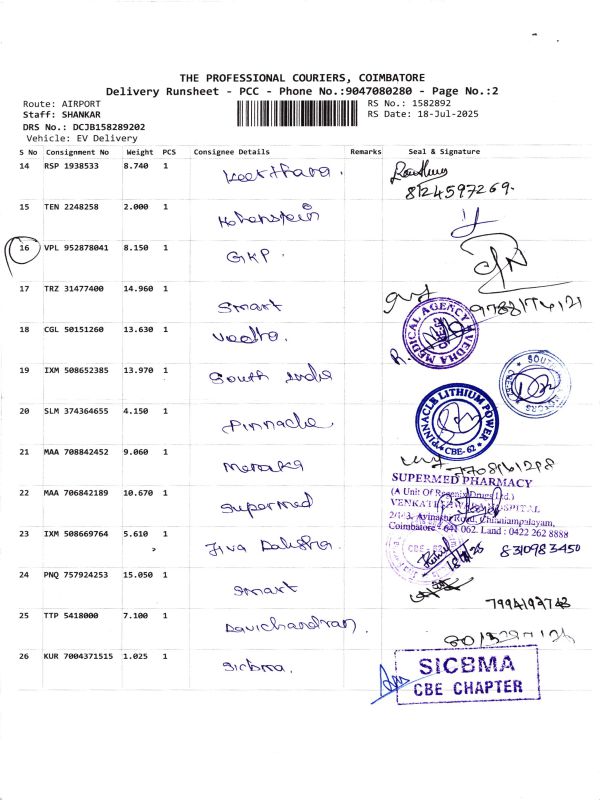 THE PROFESSIONAL COURIERS, COIMBATORE
Delivery Runsheet - PCC - Phone No.:9047080280 - Page No.:2
Route: AIRPORT
RS No.: 1582892
Staff: SHANKAR
RS Date: 18-Jul-2025
DRS No.: DCJB158289202
Vehicle: EV Delivery
S No Consignment No Weight PCS Consignee Details Remarks Seal & Signature
14 RSP 1938533 8.740 1 Keerthana.
8124597269.
15 TEN 2248258 2.000 1 Hohenstein
16 VPL 952878041 8.150 1 GKP.
17 TRZ 31477400 14.960 1 Smart
18 CGL 50151260 13.630 1 Vedha.
VEDHA MEDICAL AGENCY
19 IXM 508652385 13.970 1 South India
20 SLM 374364655 4.150 1 Pinnacle
PINNACLE LITHIUM POWER
CBE-62
21 MAA 708842452 9.060 1
22 MAA 706842189 10.670 1 Supermed
SUPERMED PHARMACY
(A Unit Of Drugs Ltd.)
Avinashi Road, Chinniampalayam,
Coimbatore - 641 062. Land : 0422 262 8888
23 IXM 508669764 5.610 1 Jiva
8310983450
24 PNQ 757924253 15.050 1 Smart
25 TTP 5418000 7.100 1 Davichandran.
26 KUR 7004371515 1.025 1 Sicbma.
SICBMA
CBE CHAPTER